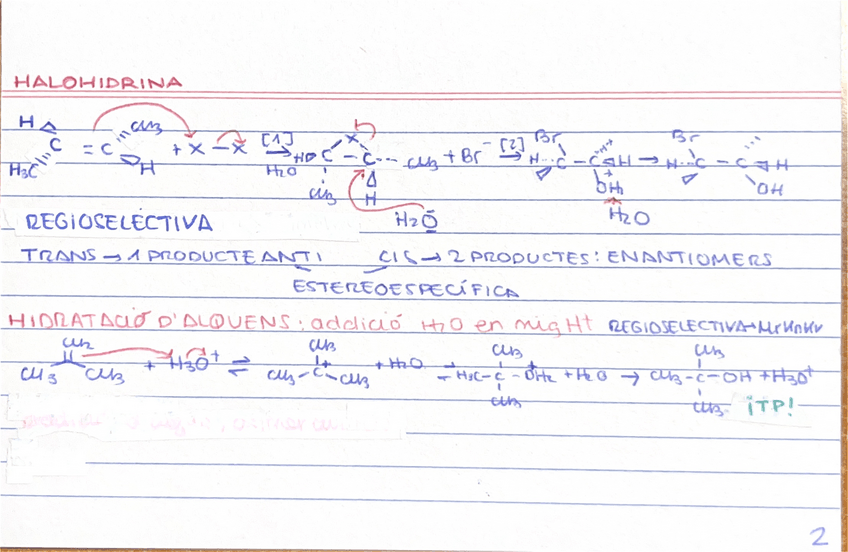 HALOHIDRINA
H CH3 H Br Br
C = C + X — X [1] H C — C CH3 + Br⁻ [2] H C — C H → H C — C H
H3C H H2O CH3 H OH2 OH
H2Ö H2O
REGIOSELECTIVA
TRANS → 1 PRODUCTE ANTI CIS → 2 PRODUCTES: ENANTIOMERS
ESTEREOESPECÍFICA
HIDRATACIÓ D'ALQUENS: addició H2O en mig H+ REGIOSELECTIVA → MrKnKv
CH2 CH3 CH3 CH3
CH3 CH3 + H3O⁺ ⇌ CH3 — C⁺ — CH3 + H2O ⇌ H3C — C — OH2⁺ + H2O → CH3 — C — OH + H3O⁺
CH3 CH3 ¡TP!
2